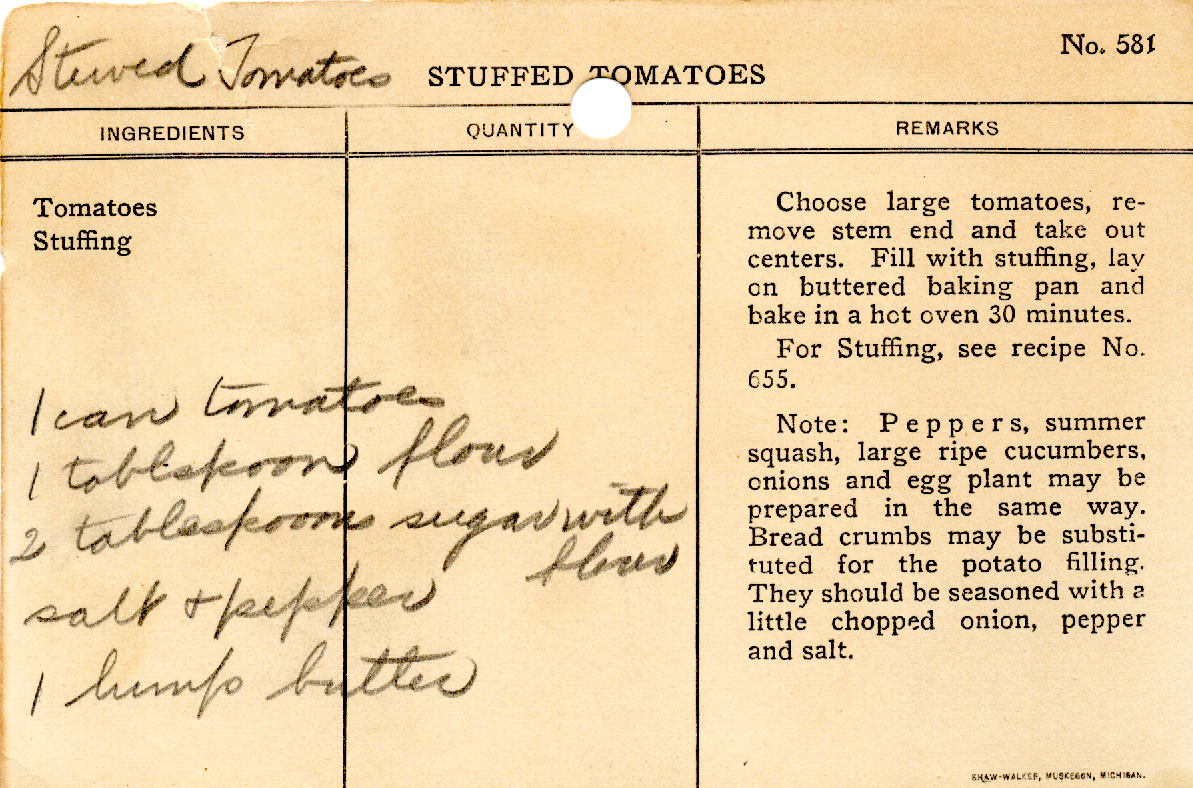 No. 581
Stewed Tomatoes STUFFED TOMATOES
INGREDIENTS QUANTITY REMARKS
Tomatoes
Stuffing
1 can tomatoes
1 tablspoon flour
2 tablespoons sugar with
flour
salt + pepper
1 lump butter
Choose large tomatoes, re-
move stem end and take out
centers. Fill with stuffing, lay
on buttered baking pan and
bake in a hot oven 30 minutes.
For Stuffing, see recipe No.
655.
Note: Peppers, summer
squash, large ripe cucumbers,
onions and egg plant may be
prepared in the same way.
Bread crumbs may be substi-
tuted for the potato filling.
They should be seasoned with a
little chopped onion, pepper
and salt.
SHAW-WALKER, MUSKEGON, MICHIGAN.